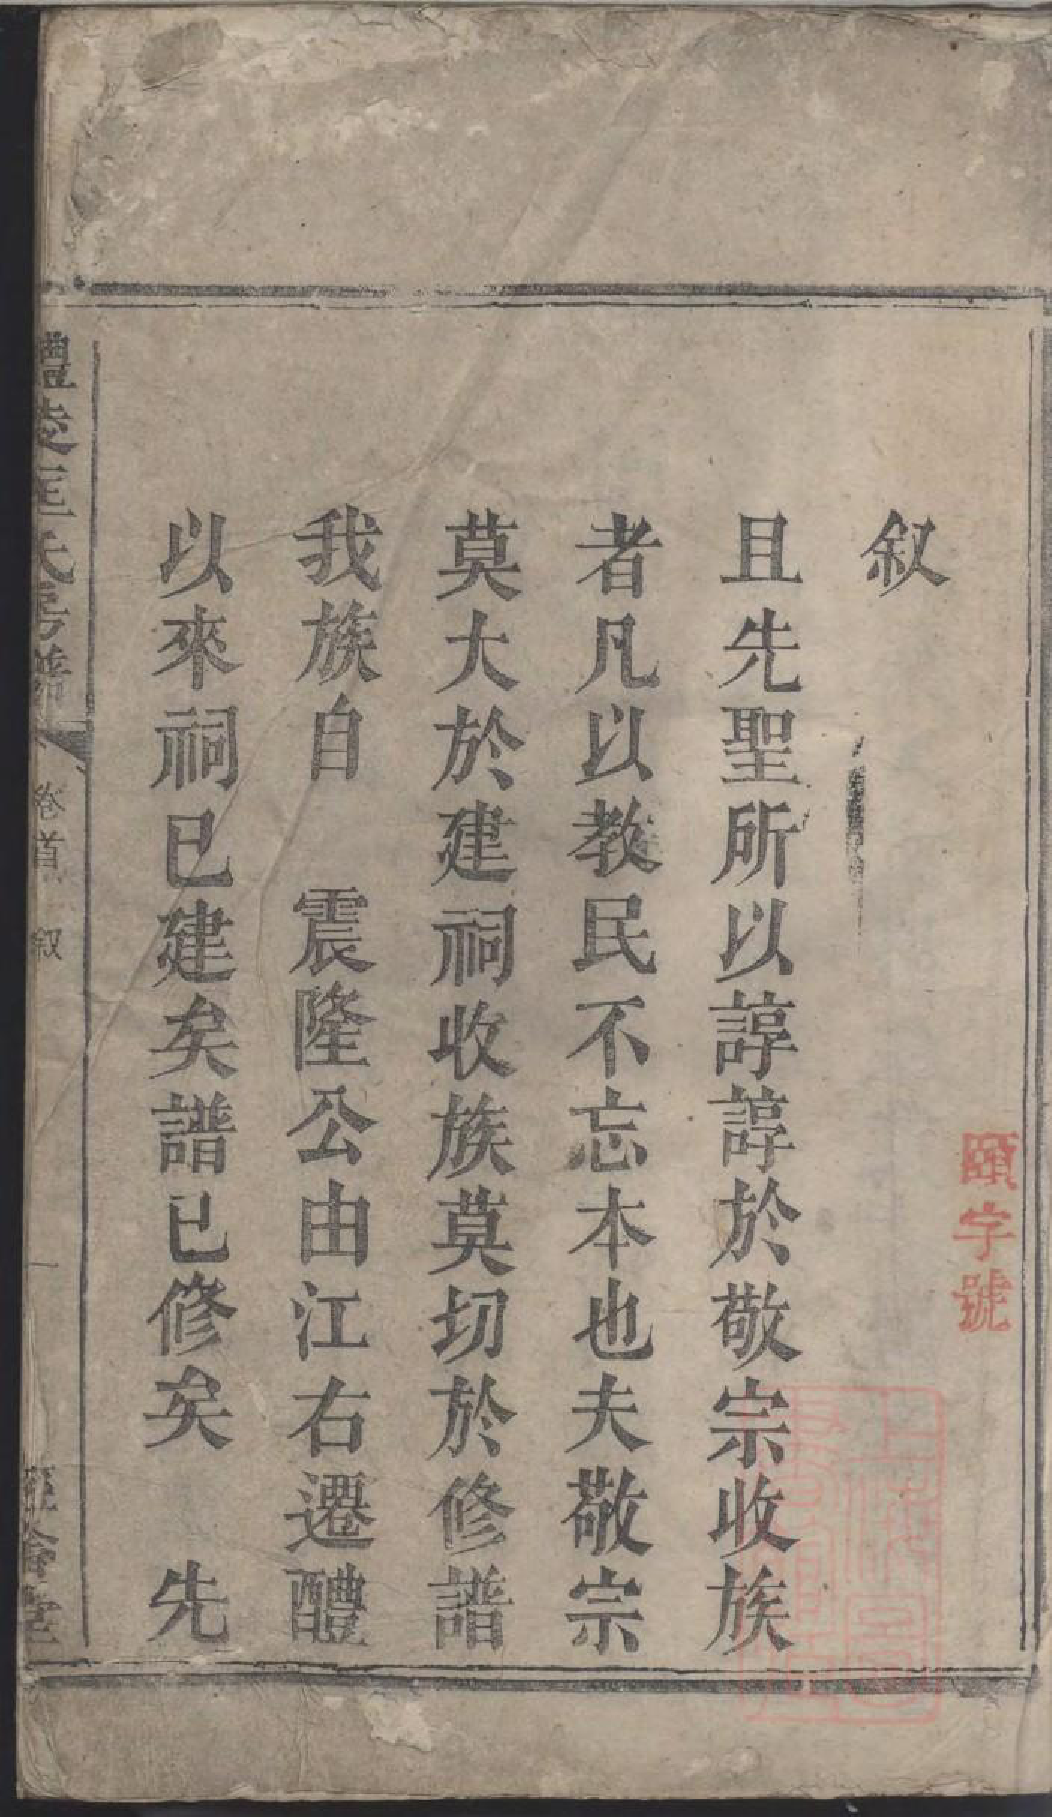 叙
且先聖所以諄諄於敬宗收族
者凡以教民不忘本也夫敬宗
莫大於建祠收族莫切於修譜
我族自　震隆公由江右遷醴
以來祠已建矣譜已修矣　先
頤字號
醴陵匡氏房譜
卷首
叙
一